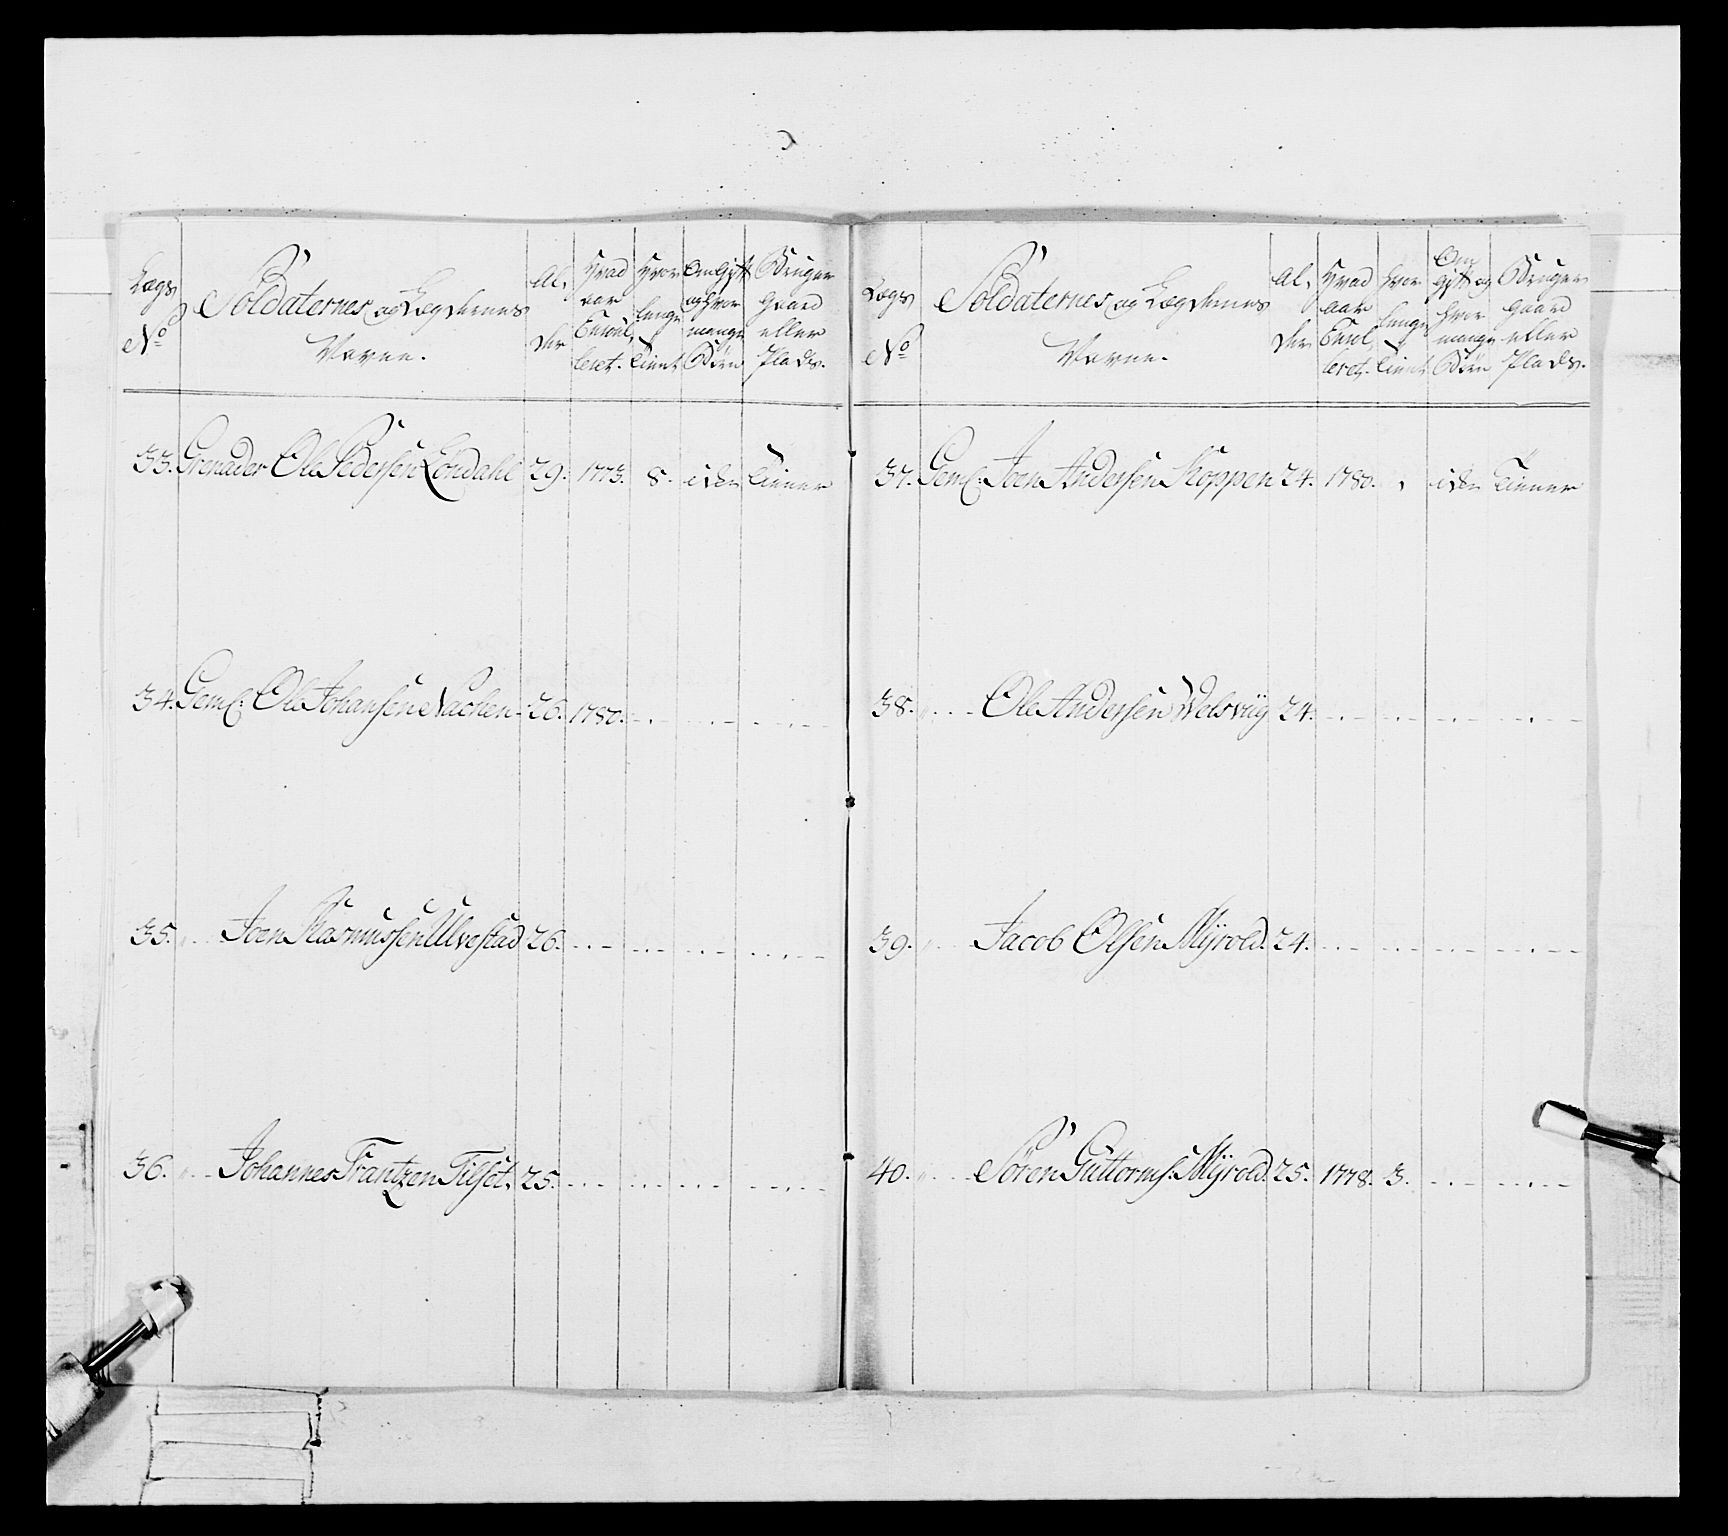 Lægs
No
Soldaternes og Lægdernes
Navne.
Al,
der
Hvad
aar
Enroul,
leret.
Hvor
lenge
tient
Om Gift
og hvor
mange
Børn
Bruger
Gaard
eller
Plads.
33. Grenader Ole Pedersen Londahl 29. 1773. 8. iche tiener
34. Geml: Ole Johansen Nachen 26. 1780.
35. Joen Rasmussen Ulvestad 26.
36. Johannes Frantzen Tilset. 25.
Lægs
No
Soldaternes og Lægdernes
Navne.
Al,
der
Hvad
aar
Enrol,
leret.
Hvor
lenge
tient
Om
gift og
hvor
mange
Børn
Bruger
Gaard
eller
Plads.
37. Geml: Joen Andersen Koppen 24. 1780. iche tiener
38. Ole Andersen Welsviig 24.
39. Jacob Olsen Mÿrold. 24.
40. Sören Guttorms. Mÿrold. 25. 1778. 3.